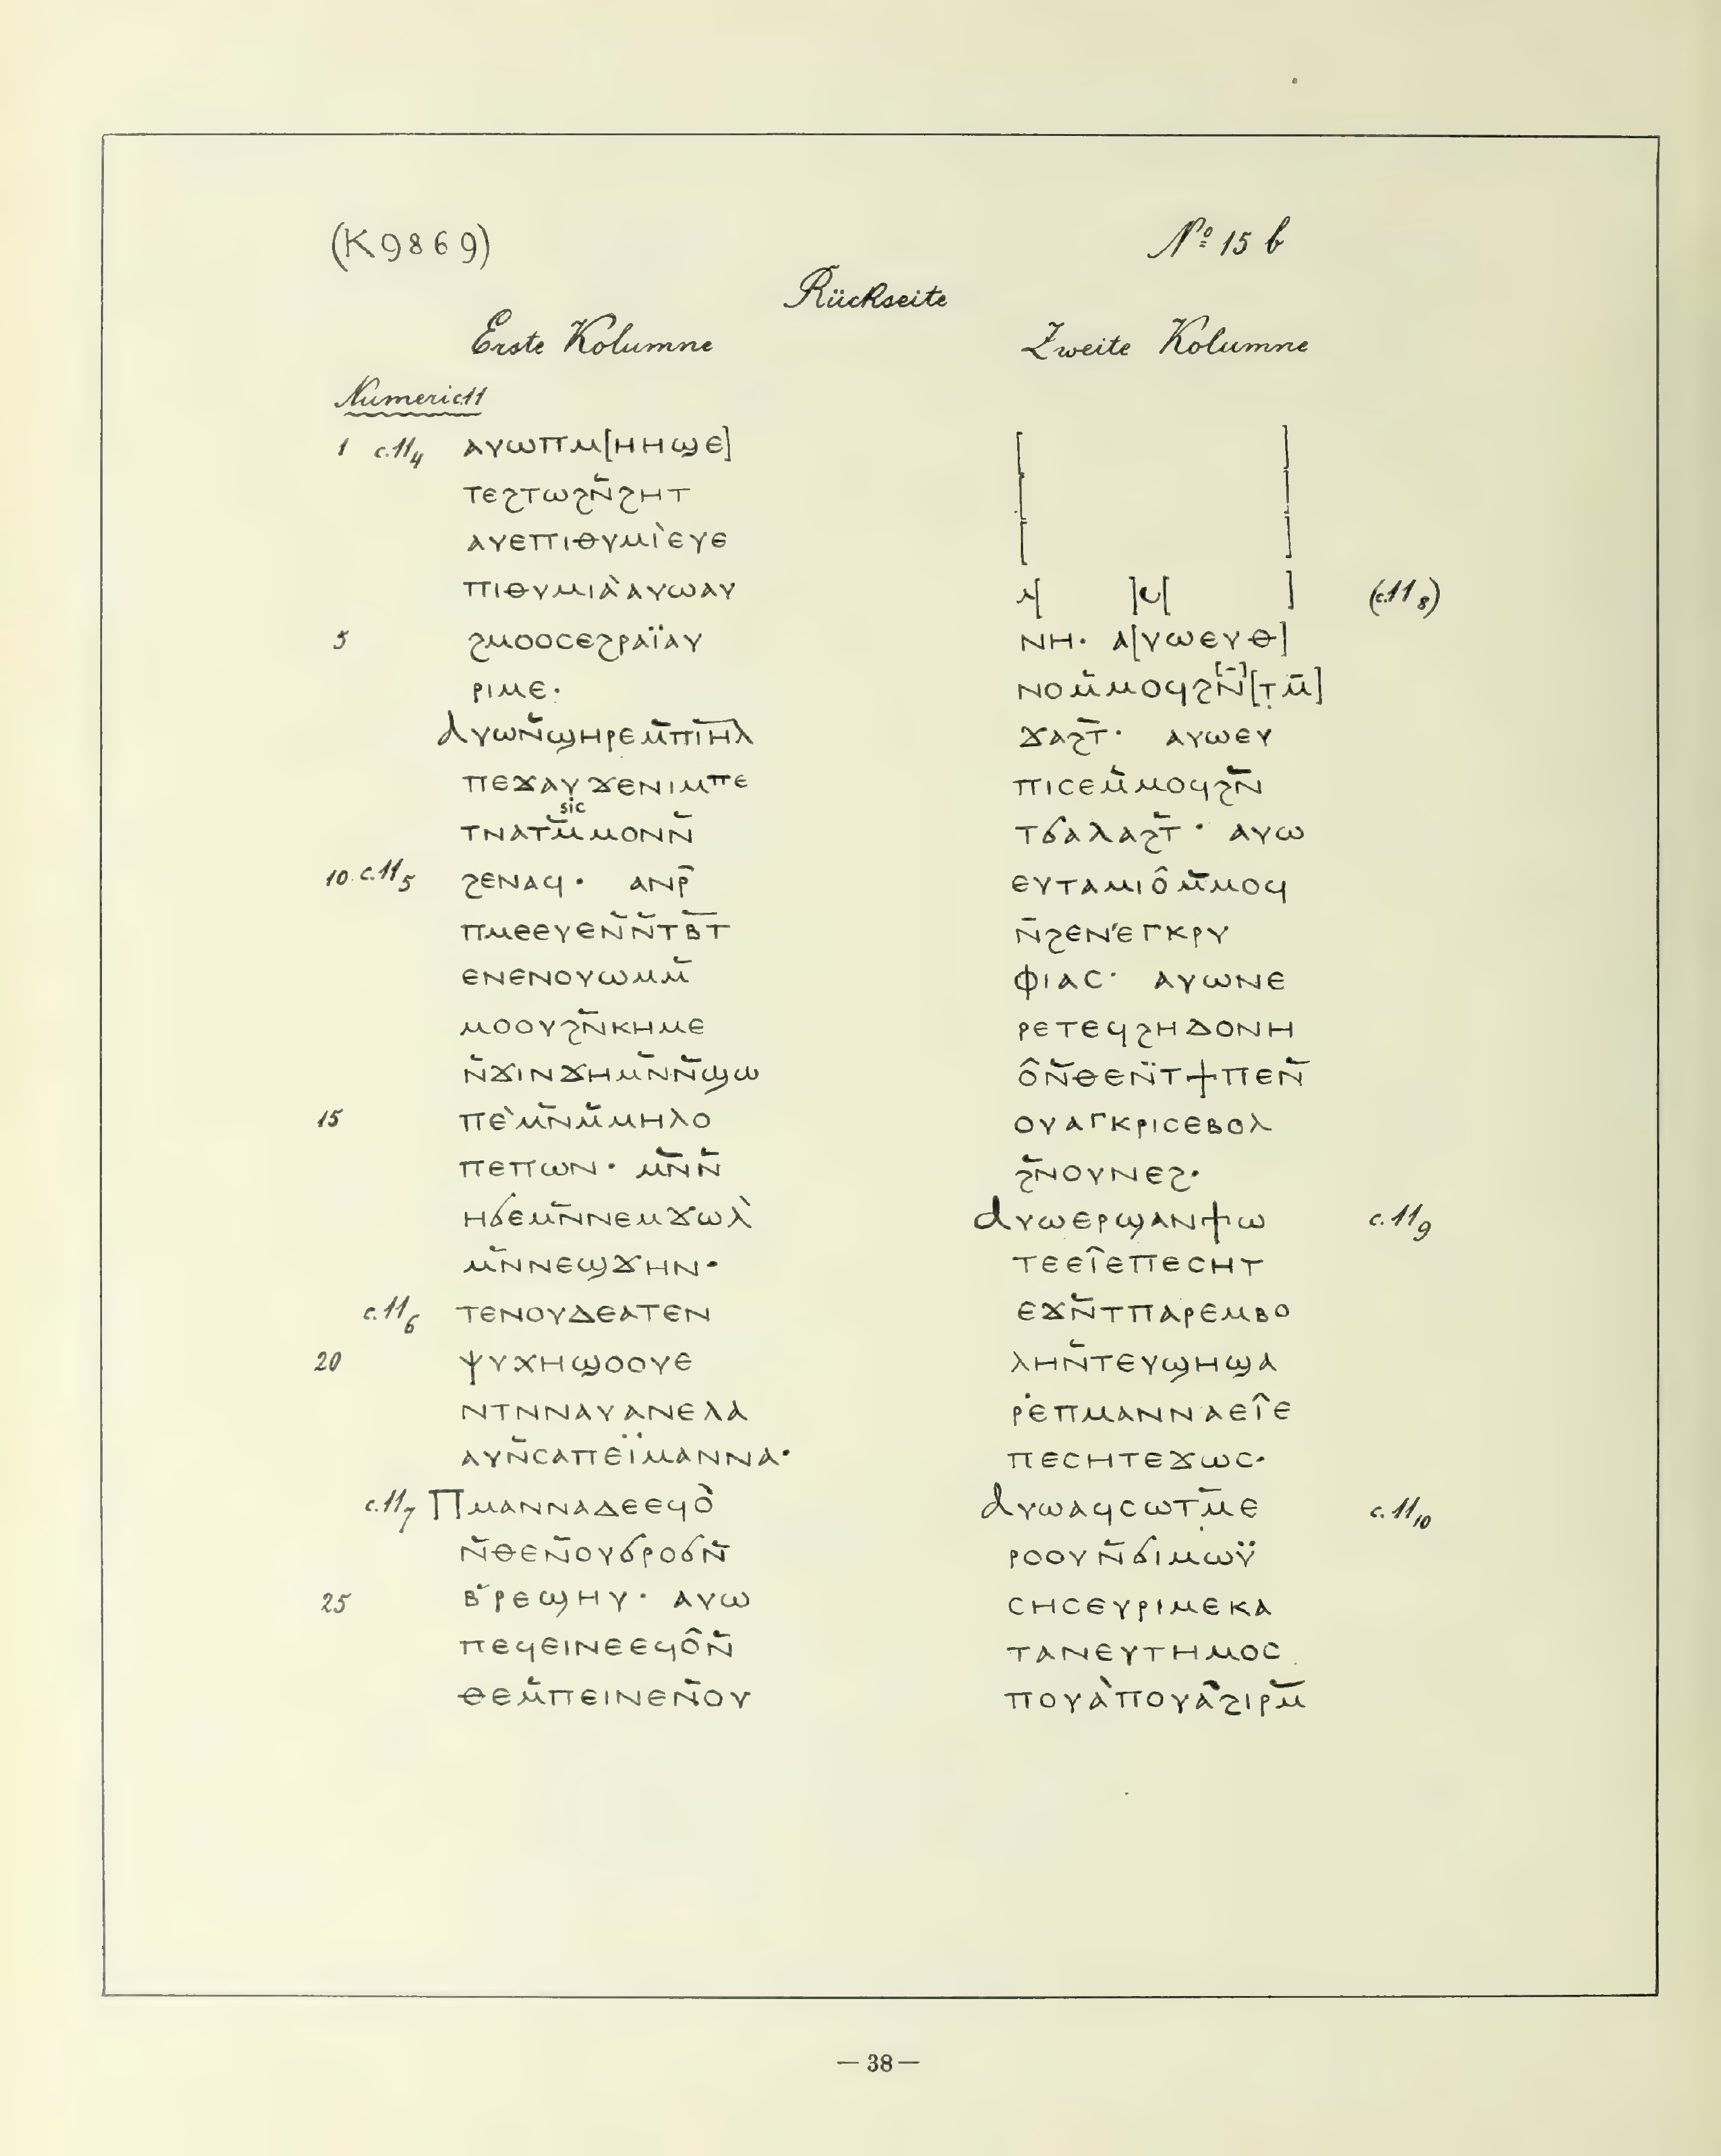 (K9869)
№ 15 b
Rückseite
Erste Kolumne
Numeri c 11
1 c. 11 4 ⲁⲩⲱⲡⲙ[ⲏⲏϣⲉ]
ⲧⲉϩⲧⲱϩⲛ̄ϩⲏⲧ
ⲁⲩⲉⲡⲓⲑⲩⲙⲓ̀ⲉⲩⲉ
ⲡⲓⲑⲩⲙⲓⲁ̀ⲁⲩⲱⲁⲩ
5 ϩⲙⲟⲟⲥⲉϩⲣⲁⲓ̈ⲁⲩ
ⲣⲓⲙⲉ·
ⲁⲩⲱⲛ̄ϣⲏⲣⲉⲙ̄ⲡⲓ̅ⲏ̅ⲗ̅
ⲡⲉϫⲁⲩϫⲉⲛⲓⲙⲡⲉ
sic
ⲧⲛⲁⲧⲙ̄ⲙⲟⲛⲛ̄
10 c. 11 5 ϩⲉⲛⲁϥ· ⲁⲛⲣ̄
ⲡⲙⲉⲉⲩⲉⲛ̄ⲛ̄ⲧⲃ̅ⲧ̅
ⲉⲛⲉⲛⲟⲩⲱⲙⲙ̄
ⲙⲟⲟⲩϩⲛ̄ⲕⲏⲙⲉ
ⲛ̄ϫⲓⲛϫⲏⲙⲛ̄ⲛ̄ϣⲱ
15 ⲡⲉ̀ⲙⲛ̄ⲙ̄ⲙⲏⲗⲟ
ⲡⲉⲡⲱⲛ· ⲙⲛ̄ⲛ̄
ⲏϭⲉⲙⲛ̄ⲛⲉⲙϫⲱⲗ̀
ⲙⲛ̄ⲛⲉϣϫⲏⲛ·
c. 11 6 ⲧⲉⲛⲟⲩⲇⲉⲁⲧⲉⲛ
20 ⲯⲩⲭⲏϣⲟⲟⲩⲉ
ⲛⲧⲛⲛⲁⲩⲁⲛⲉⲗⲁ
ⲁⲩⲛ̄ⲥⲁⲡⲉⲓ̈ⲙⲁⲛⲛⲁ·
c. 11 7 ⲡⲙⲁⲛⲛⲁⲇⲉⲉϥⲟ̀
ⲛ̄ⲑⲉⲛ̄ⲟⲩϭⲣⲟϭⲛ̄
25 ⲃ̄ⲣⲉϣⲏⲩ· ⲁⲩⲱ
ⲡⲉϥⲉⲓⲛⲉⲉϥⲟ̂ⲛ̄
ⲑⲉⲙ̄ⲡⲉⲓⲛⲉⲛ̄ⲟⲩ
Zweite Kolumne
[ ]
[ ]
[ ]
ⲙ[ ]ⲱ[ ] (c. 11 8)
ⲛⲏ· ⲁ[ⲩⲱⲉⲩⲑ]
ⲛⲟⲙ̄ⲙⲟϥϩⲛ[̄][ⲧⲙ̄]
ϫⲁϩⲧ̄· ⲁⲩⲱⲉⲩ
ⲡⲓⲥⲉⲙ̄ⲙⲟϥϩⲛ̄
ⲧϭⲁⲗⲁϩⲧ̄· ⲁⲩⲱ
ⲉⲩⲧⲁⲙⲓⲟ̂ⲙ̄ⲙⲟϥ
ⲛ̄ϩⲉⲛ'ⲉⲅⲕⲣⲩ
ⲫⲓⲁⲥ· ⲁⲩⲱⲛⲉ
ⲣⲉⲧⲉϥϩⲏⲇⲟⲛⲏ
ⲟ̂ⲛ̄ⲑⲉⲛ̈ⲧϯⲡⲉⲛ̄
ⲟⲩⲁⲅⲕⲣⲓⲥⲉⲃⲟⲗ
ϩⲛ̄ⲟⲩⲛⲉϩ·
ⲁⲩⲱⲉⲣϣⲁⲛϯⲱ c. 11 9
ⲧⲉⲉⲓ̂ⲉⲡⲉⲥⲏⲧ
ⲉϫⲛ̄ⲧⲡⲁⲣⲉⲙⲃⲟ
ⲗⲏⲛ̄ⲧⲉⲩϣⲏϣⲁ
ⲣⲉ̇ⲡⲙⲁⲛⲛⲁⲉⲓ̂ⲉ
ⲡⲉⲥⲏⲧⲉϫⲱⲥ·
ⲁⲩⲱⲁϥⲥⲱⲧⲙ̄ⲉ c. 11 10
ⲣⲟⲟⲩⲛ̄ϭⲓⲙⲱⲩ̈
ⲥⲏⲥⲉⲩⲣⲓⲙⲉⲕⲁ
ⲧⲁⲛⲉⲩⲧⲏⲙⲟⲥ
ⲡⲟⲩⲁ̀ⲡⲟⲩⲁ̂ϩⲓⲣⲙ̄
— 38 —